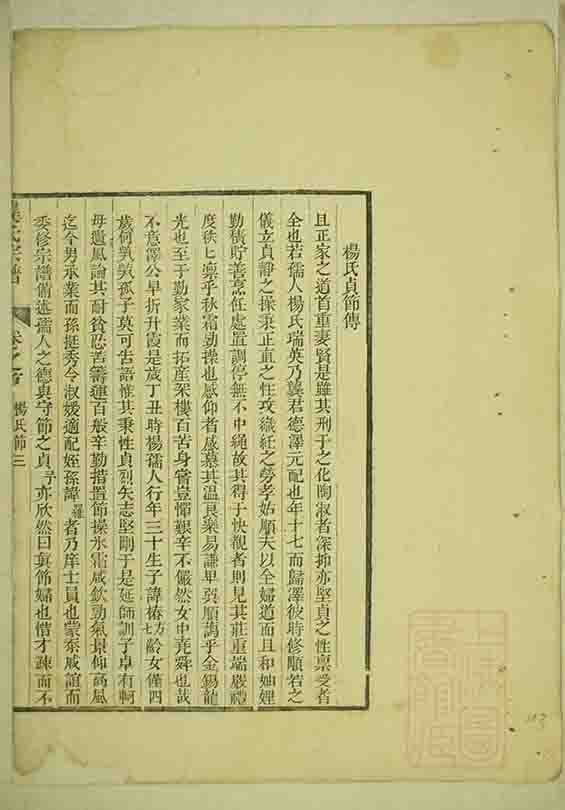 楊氏貞節傳
且正家之道首重妻賢是雖其刑于之化陶淑者深抑亦堅貞之性稟受者
全也若孺人楊氏瑞英乃龔君德澤元配也年十七而歸澤彼時修順若之
儀立貞靜之操秉正直之性攻織紅之勞孝姑順夫以全婦道而且和妯娌
勤積貯善烹飪處置調停無不中繩故其得于快觀者則見其莊重端嚴禮
度秩匕凛乎秋霜勁操也感仰者感慕其溫良樂易謙卑巽順藹乎金錫龍
光也至于勤家業而拓産架樓百苦身嘗豈憚艱辛不儼然女中堯舜也哉
不意澤公早折升霞是歲丁丑時楊孺人行年三十生子諱椿方七齡女僅四
歲何煢煢孤子莫可告語惟其秉性貞烈矢志堅剛于是延師訓子卓有軻
母遺風論其耐貧忍苦籌運百般辛勤措置節操氷霜咸欽勁氣景仰高風
迄今男承業而孫挺秀令淑媛適配姪孫諱羅者乃庠士員也蒙忝戚誼而
委修宗譜備述孺人之德與守節之貞予亦欣然曰眞節婦也惜才疎而不
氏宗譜
卷之
楊氏節
三
113